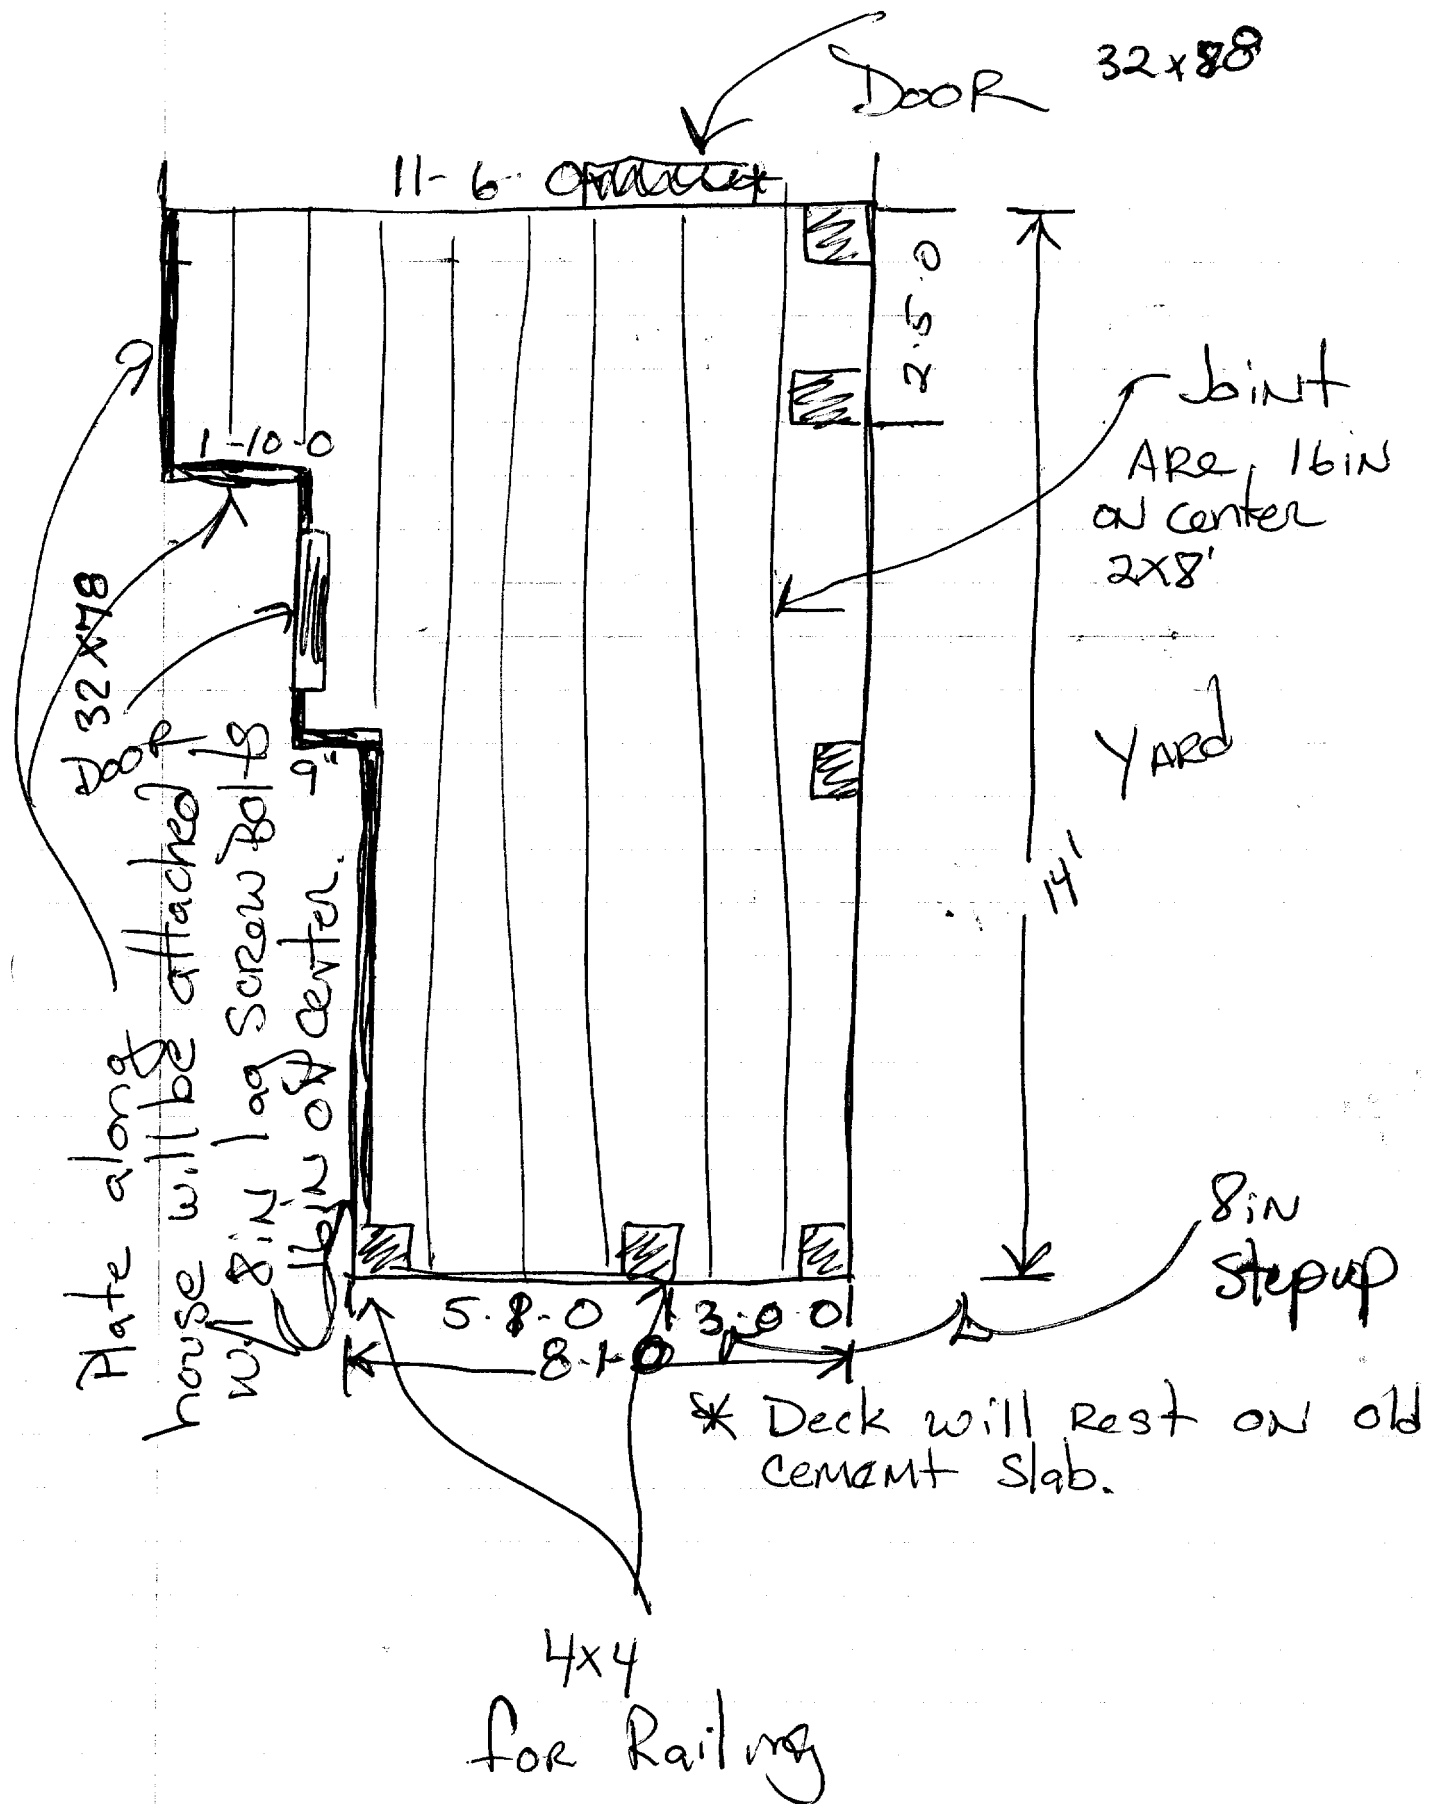 DOOR 32x80
11-6-0
2-5-0
Joint
ARe, 16iN
oN center
2x8'
1-10-0
Door 32x78
9"
YARd
14'
Plate along
house will be attached
w/ 8iN lag Screw Bolts
16iN of center.
8iN
Stepup
3-0-0
8-1-0
* Deck will Rest oN old
cement Slab.
4x4
for Railing